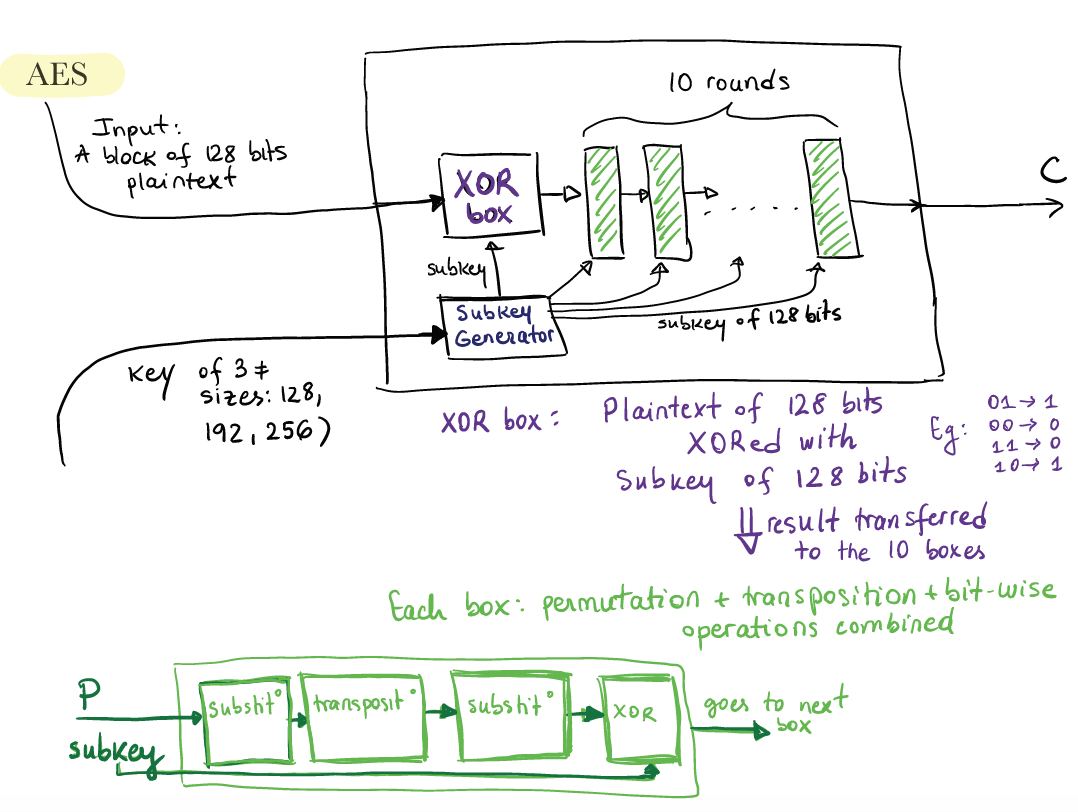 AES
Input:
A block of 128 bits
plaintext
10 rounds
XOR
box
C
subkey
Subkey
Generator
subkey of 128 bits
key of 3 ≠
sizes: 128,
192, 256)
XOR box: Plaintext of 128 bits
XORed with
Subkey of 128 bits
Eg: 01→1
00→0
11→0
10→1
result transferred
to the 10 boxes
Each box: permutation + transposition + bit-wise
operations combined
P
substit°
transposit°
substit°
XOR
goes to next
box
subkey